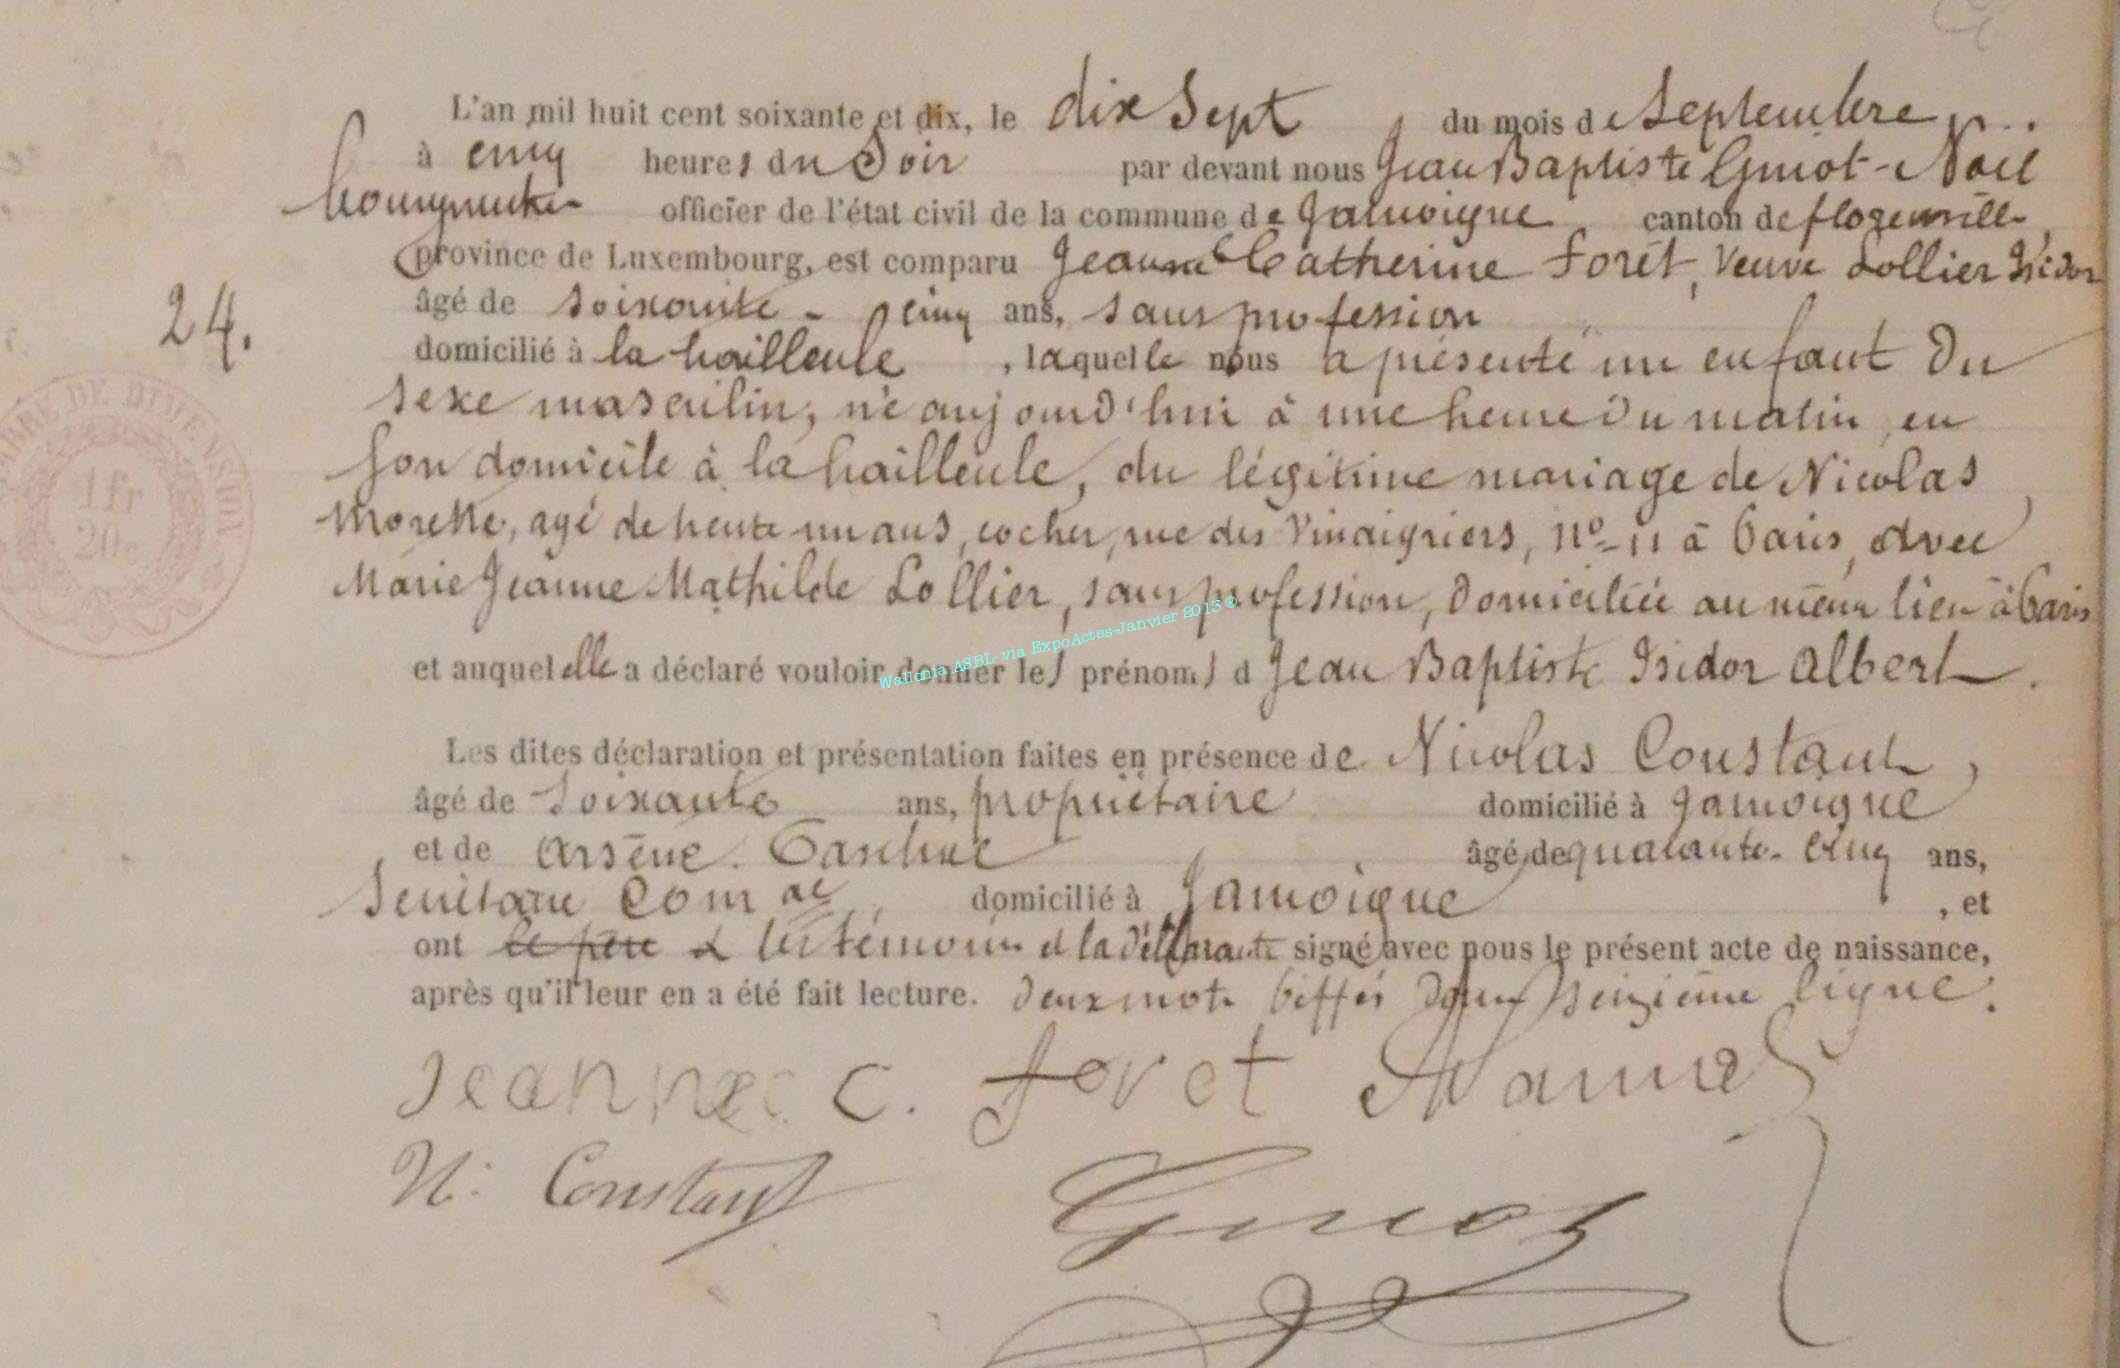 L'an mil huit cent soixante et dix, le dix Sept du mois de Septembre
à cinq heures du Soir par devant nous Jean Baptiste Guiot-Noël
Bourgmestre officier de l'état civil de la commune de Jamoigne canton de florenville,
province de Luxembourg, est comparu Jeanne Catherine Forêt, Veuve Lollier Isidor
24.
âgé de soixante-cinq ans, sans profession
domicilié à la hailleule, laquelle nous a présenté un enfant du
sexe masculin, né aujourd'hui à une heure du matin, en
son domicile à la hailleule, du légitime mariage de Nicolas
Morette, agé de trente un ans, cocher, rue des Vinaigriers, n° 11 à Paris, avec
TIMBRE DE DIMENSION
1 fr
20c
Marie Jeanne Mathilde Lollier, sans profession, domiciliée au même lieu à Paris
Wallonia ASBL via ExpoActes-Janvier 2015 ©
et auquel elle a déclaré vouloir donner les prénoms d Jean Baptiste Isidor Albert.
Les dites déclaration et présentation faites en présence de Nicolas Constant,
âgé de Soixante ans, propriétaire domicilié à Jamoigne
et de Arsène âgé de quarante-cinq ans,
Secrétaire Com al domicilié à Jamoigne, et
ont le père & les témoins et la déclarante signé avec nous le présent acte de naissance,
après qu'il leur en a été fait lecture. deux mots biffés dans seizième ligne.
Jeanne C. foret
N. Constant Guiot